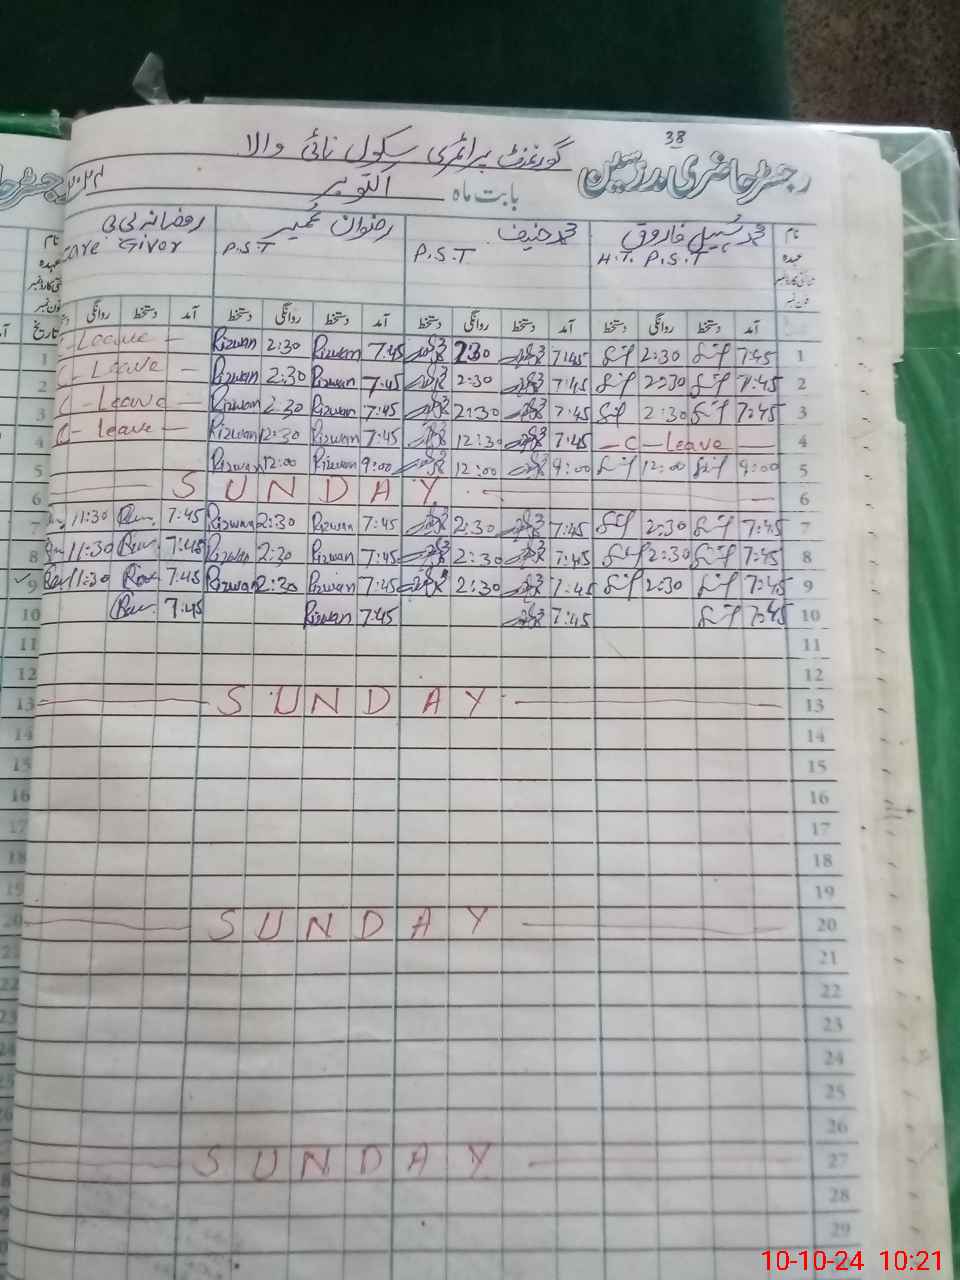 38
رجسٹر حاضری مدرسین گورنمنٹ پرائمری سکول نائی والا
بابت ماہ اکتوبر
نام محمد سہیل فاروق محمد حنیف رضوان عمیر رخسانہ بی بی
عہدہ H.T. P.S.T P.S.T P.S.T Care Giver
آمد دستخط روانگی دستخط آمد دستخط روانگی دستخط آمد دستخط روانگی دستخط آمد دستخط روانگی
1 C-Leave — Rizwan 2:30 Rizwan 7:45 2:30 7:45 2:30 7:45 1
2 C-Leave — Rizwan 2:30 Rizwan 7:45 2:30 7:45 2:30 7:45 2
3 C-Leave — Rizwan 2:30 Rizwan 7:45 2:30 7:45 2:30 7:45 3
4 C-leave — Rizwan 12:30 Rizwan 7:45 12:30 7:45 — C-Leave — 4
5 Rizwan 12:00 Rizwan 9:00 12:00 9:00 12:00 9:00 5
6 SUNDAY 6
7 11:30 7:45 Rizwan 2:30 Rizwan 7:45 2:30 7:45 2:30 7:45 7
8 11:30 7:45 Rizwan 2:30 Rizwan 7:45 2:30 7:45 2:30 7:45 8
9 11:30 7:45 Rizwan 2:30 Rizwan 7:45 2:30 7:45 2:30 7:45 9
10 7:45 Rizwan 7:45 7:45 7:45 10
11 11
12 12
13 SUNDAY 13
14 14
15 15
16 16
17 17
18 18
19 19
20 SUNDAY 20
21 21
22 22
23 23
24 24
25 25
26 26
SUNDAY 27
28
29
10-10-24 10:21